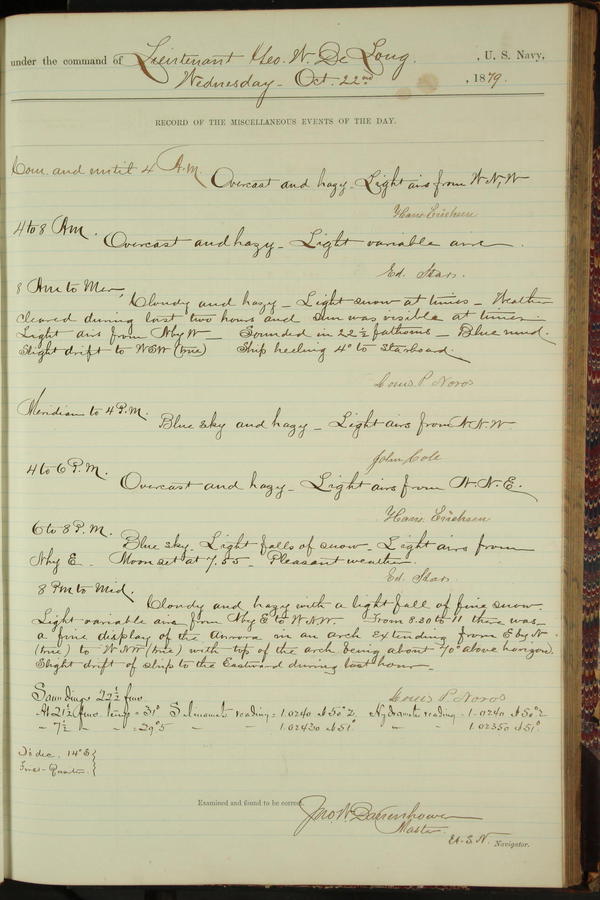 under the command of Lieutenant Geo. W. De Long. , U. S. Navy,
Wednesday - Oct. 22nd , 1879.
RECORD OF THE MISCELLANEOUS EVENTS OF THE DAY.
Com. and until 4 A.M.
Overcast and hazy - Light airs from W.N.W
Hans Erichsen
4 to 8 Am.
Overcast and hazy - Light variable airs.
Ed. Starr.
8 Am to Mer,
Cloudy and hazy - Light snow at times - Weather
cleared during last two hours and Sun was visible at times.
Light airs from N by W - Sounded in 22½ fathoms - Blue mud.
Slight drift to WSW (true) Ship heeling 4° to Starboard.
Louis P. Noros
Meridian to 4 P.M.
Blue sky and hazy - Light airs from N.N.W.
John Cole
4 to 6 P.M.
Overcast and hazy - Light airs from N.N.E.
Hans Erichsen
6 to 8 P.M.
Blue sky. Light falls of snow - Light airs from
N by E. Moon set at 7.55 - Pleasant weather.
Ed. Starr.
8 Pm to Mid.
Cloudy and hazy with a light fall of fine snow.
Light variable airs from N by E to W.N.W. From 8.30 to 11 there was
a fine display of the Aurora in an arch extending from E by N
(true) to WNW (true) with top of the arch being about 70° above horizon.
Slight drift of ship to the Eastward during last hour -
Louis P. Noros
Soundings 22½ fms
At 21½ fms temp = 31° Salinometer reading = 1.0240 At 50°2 Hydrometer reading = 1.0240 At 50°2
" 7½ " " = 29°5 " " 1.02430 At 51° " " 1.02350 At 51°
)'s dec. 14° S
First-Quarter.
Examined and found to be correct.
Jno. W. Danenhower
Master
U.S.N. Navigator.